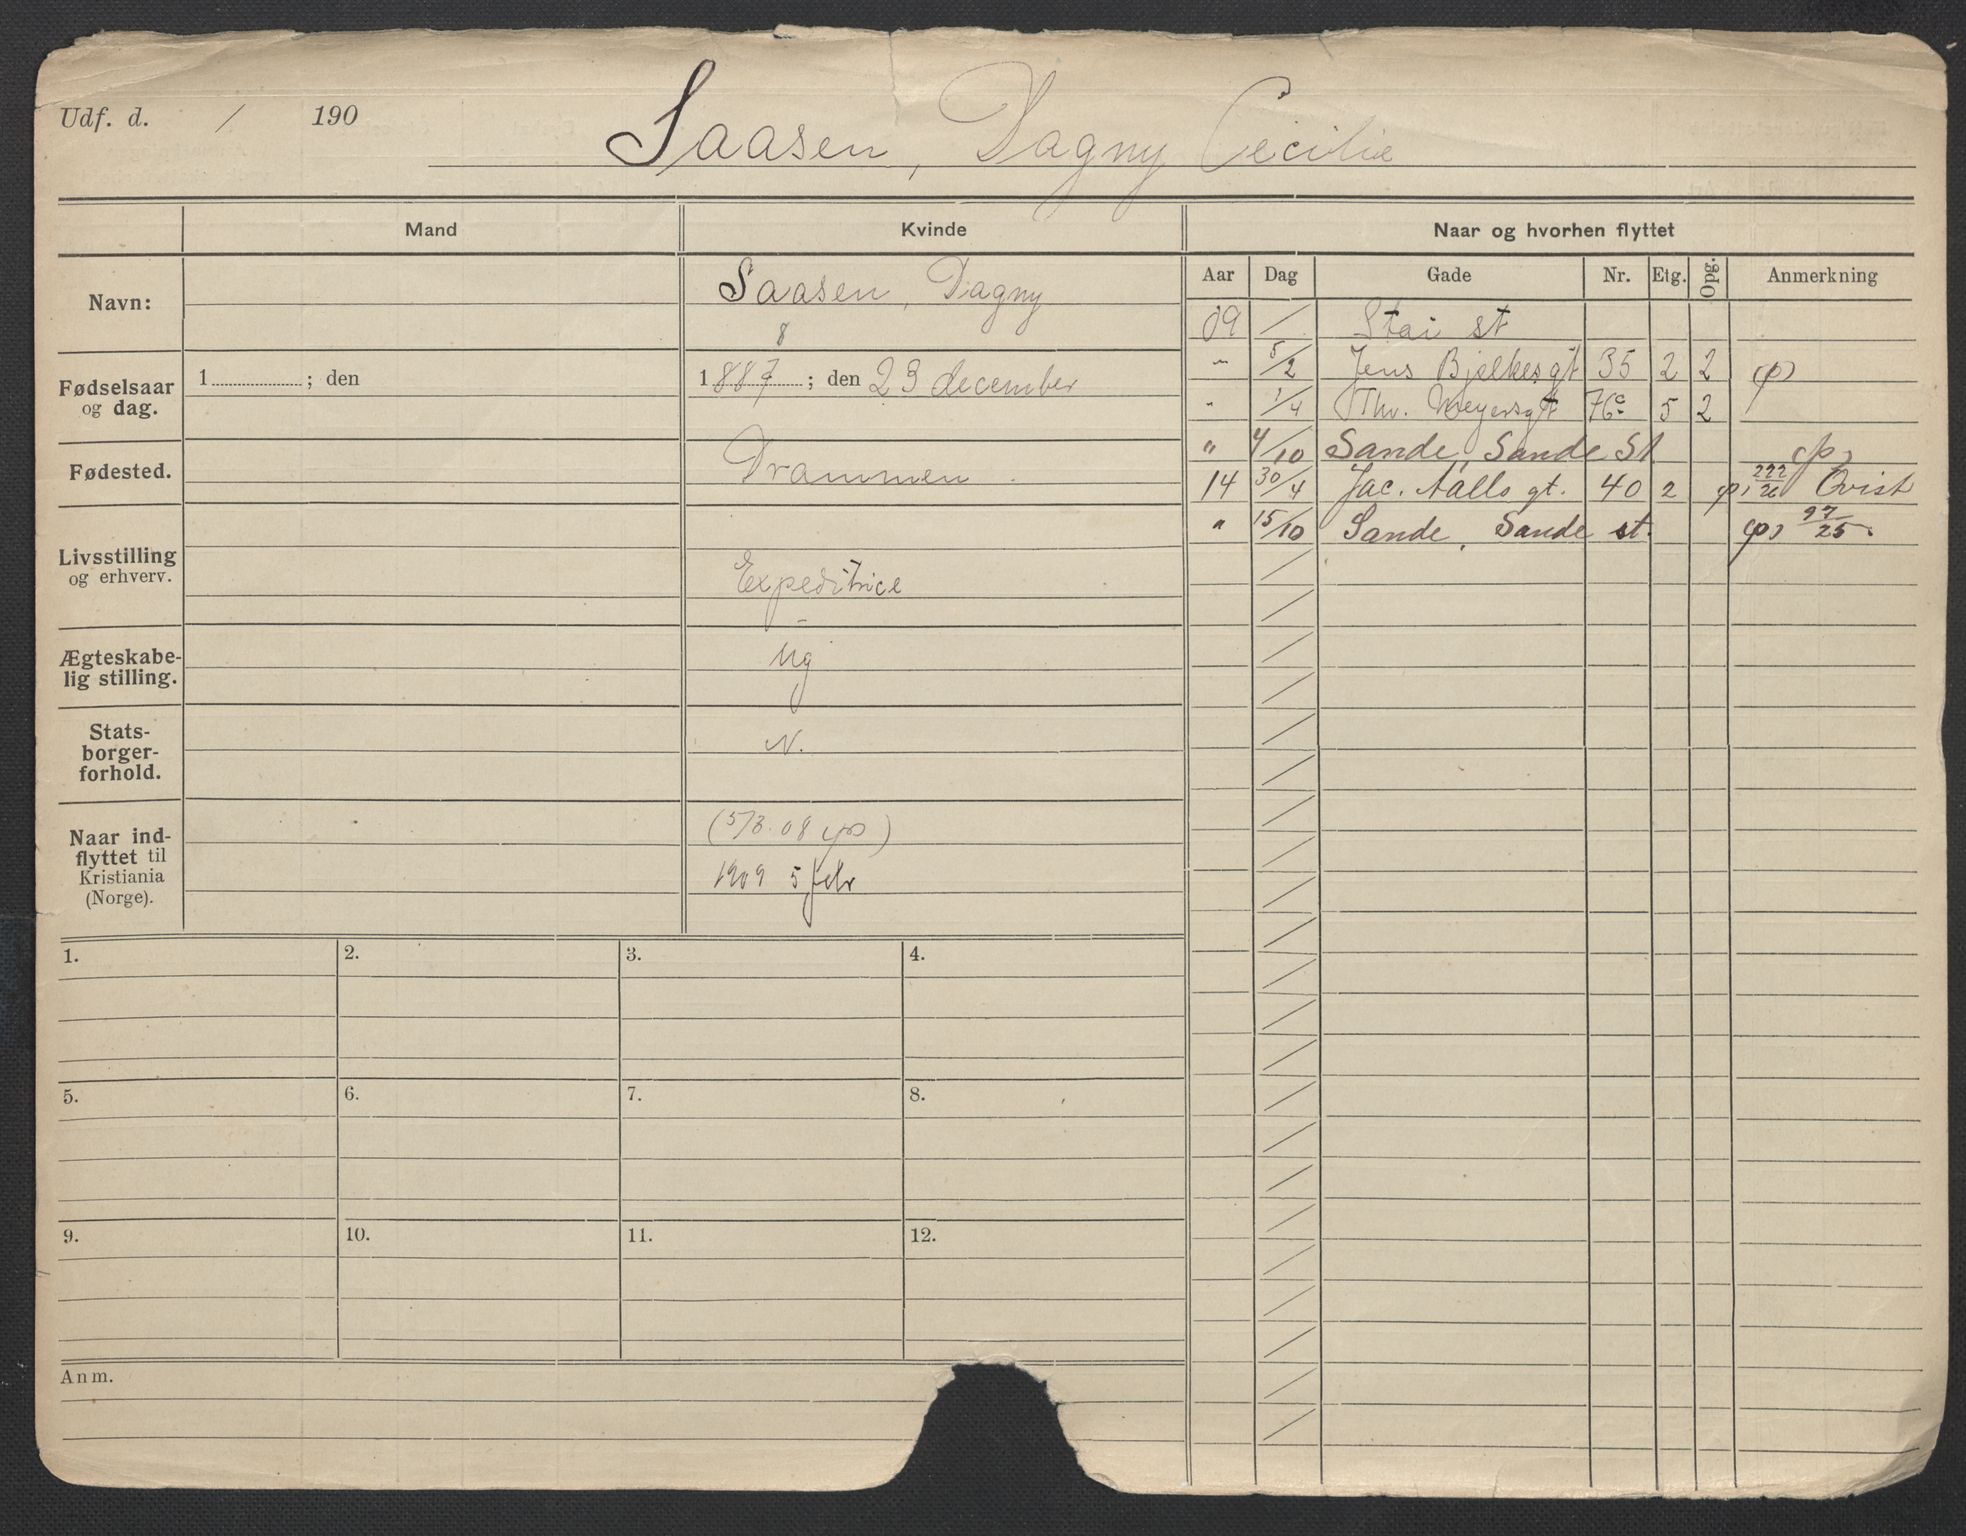 Udf. d. / 190
Saasen, Dagny Cecilie
Mand
Kvinde
Naar og hvorhen flyttet
Navn:
Saasen, Dagny
8
Fødselsaar og dag.
1 ; den
1887 ; den 23 december
Fødested.
Drammen
Livsstilling og erhverv.
Expeditrice
Ægteskabe-
lig stilling.
Ug
Stats-
borger-
forhold.
N.
Naar ind-
flyttet til
Kristiania
(Norge).
(5/3. 08 )
1909 5 febr
Aar Dag Gade Nr. Etg. Opg. Anmerkning
09 / Stai st
" 5/2 Jens Bjelkesgt 35 2 2
" 1/4 Thv. Meyersgt 76c 5 2
" 4/10 Sande, Sande St
14 30/4 Jac. Aalls gt. 40 2 222/26 Qvist
" 15/10 Sande, Sande st. 97/25
1.
2.
3.
4.
5.
6.
7.
8.
9.
10.
11.
12.
Anm.